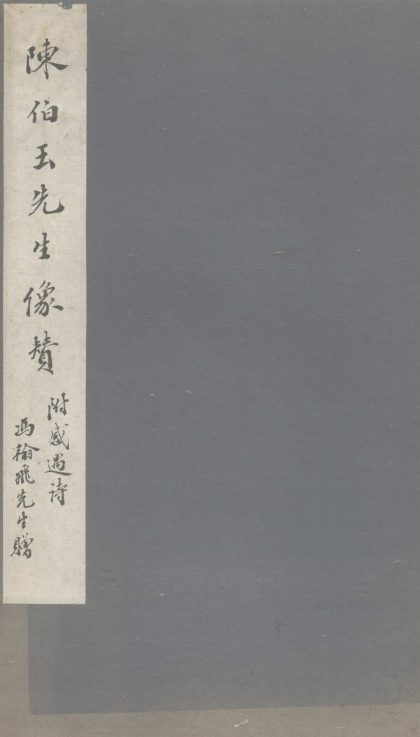 陳伯玉先生像贊
附感遇诗
馮翰飛先生贈